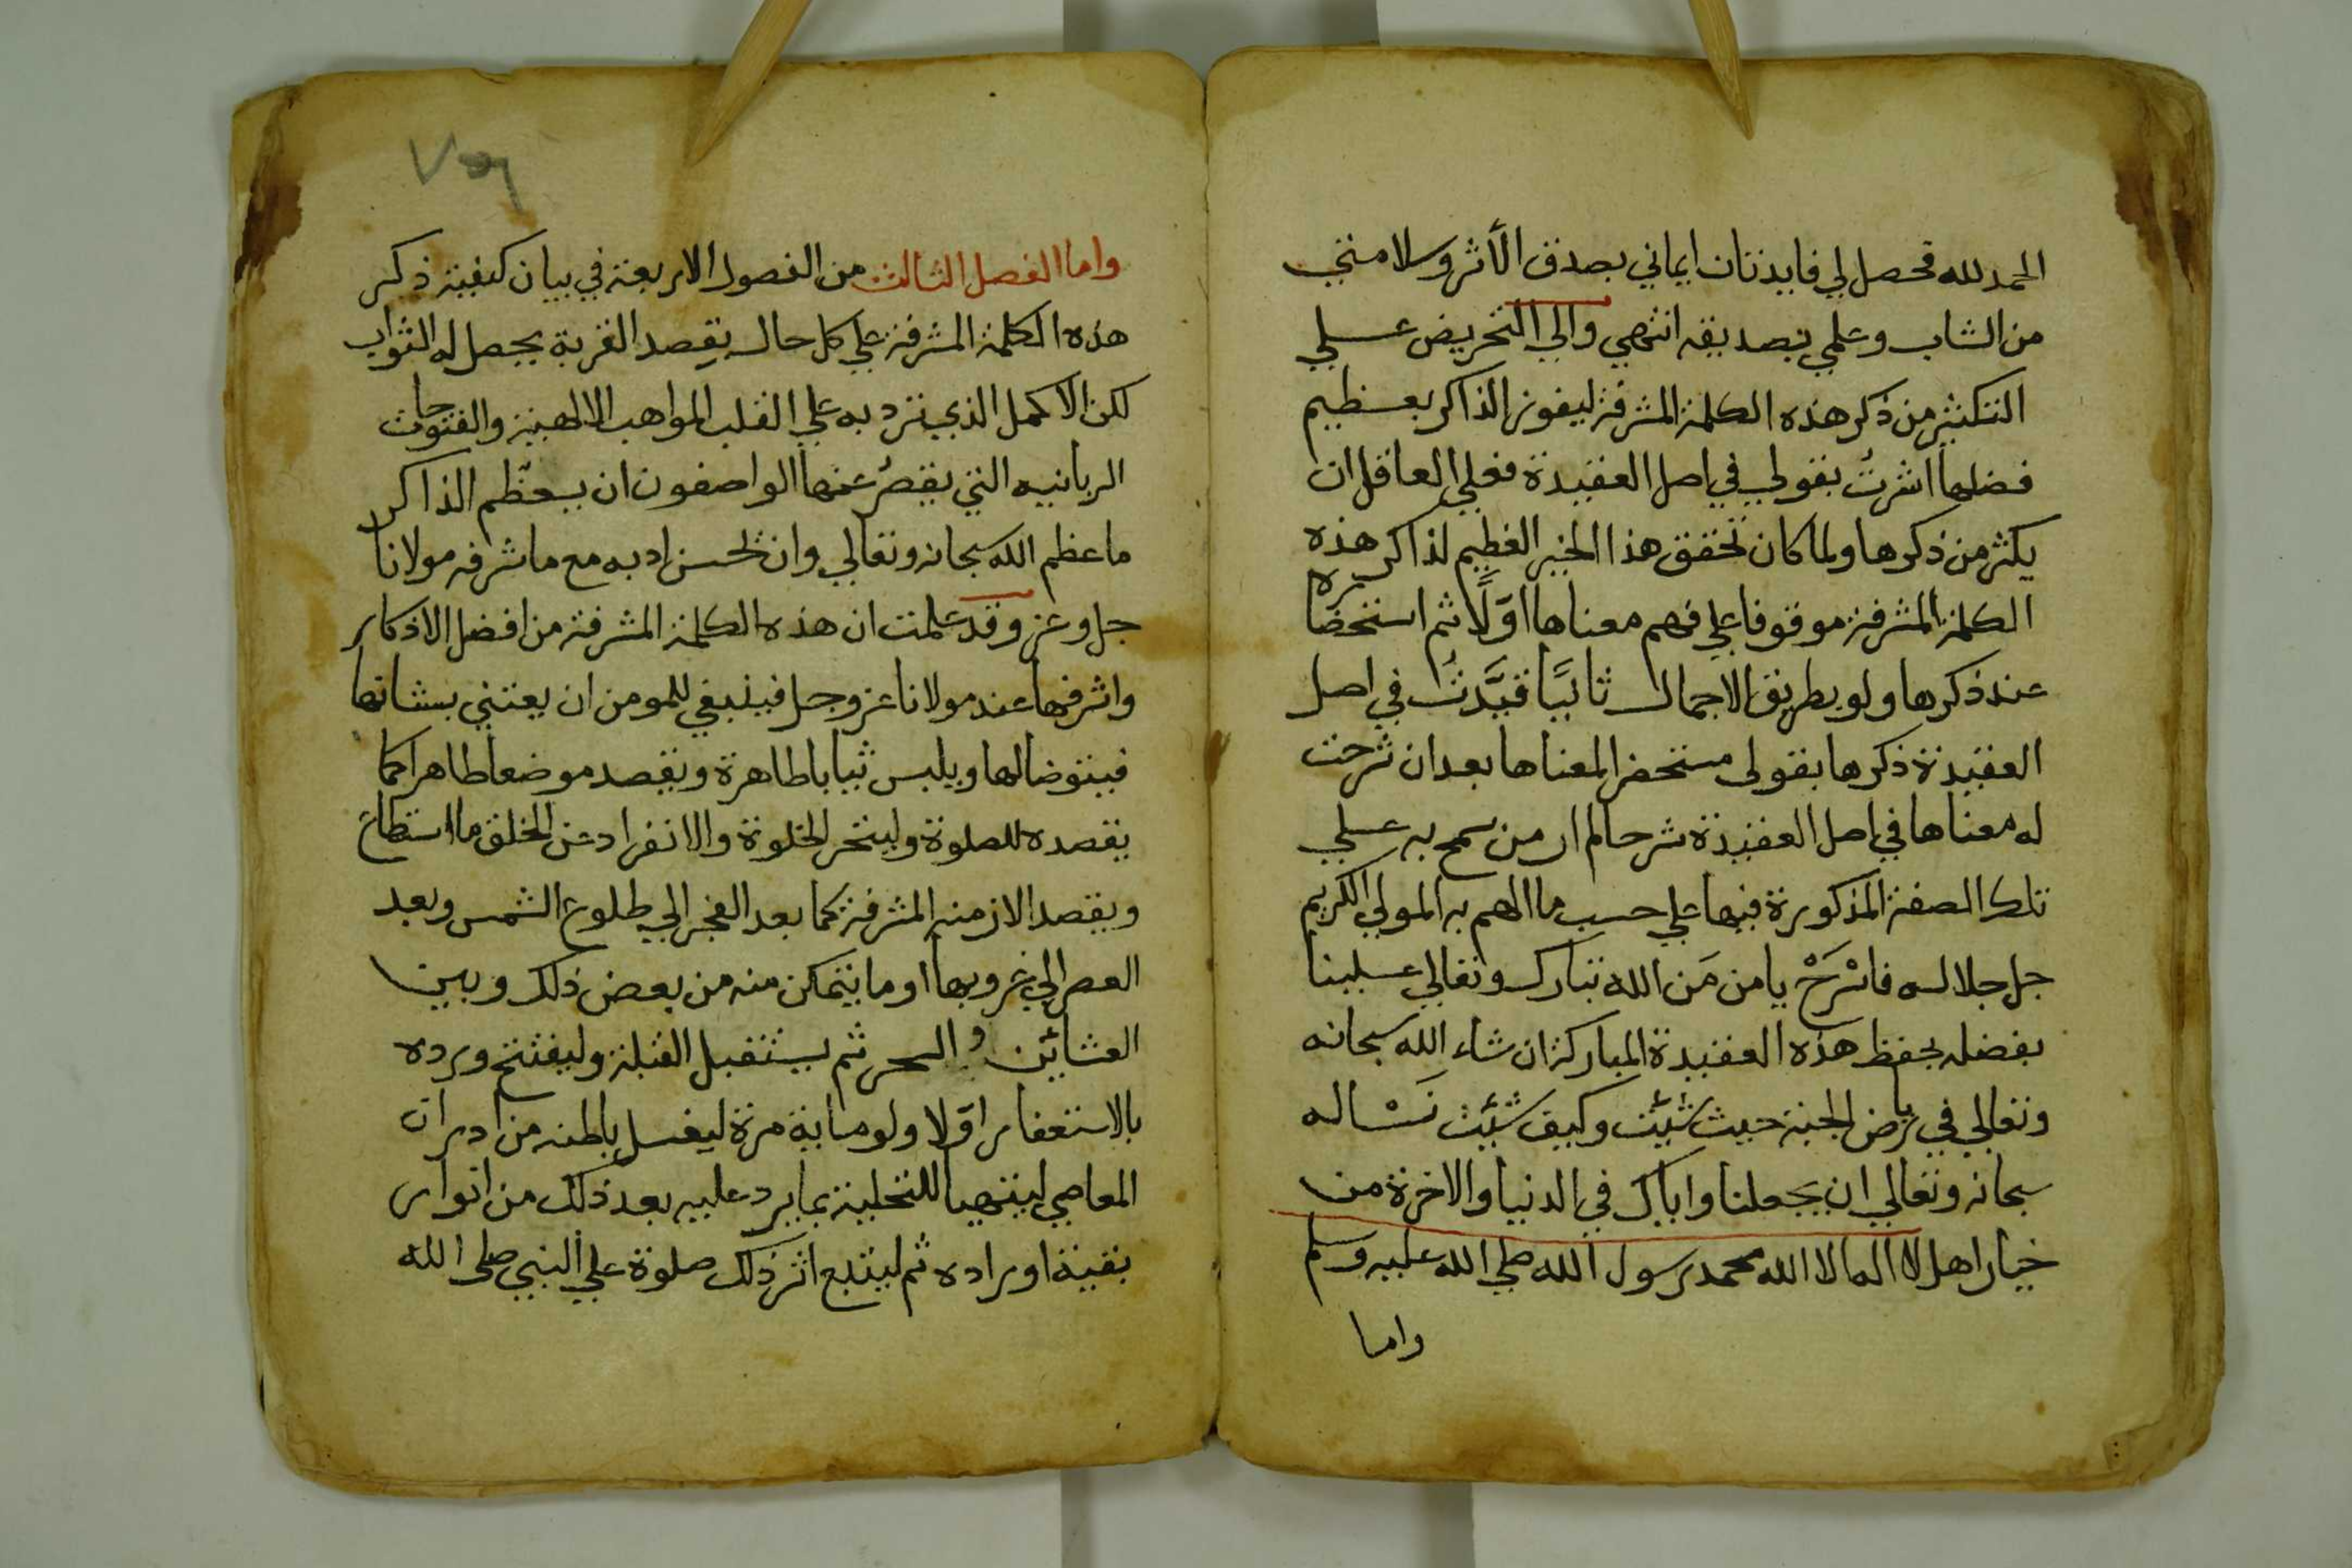 الحمد لله فحصل لي فايدتان ايماني بصدق الأثر وسلامتي
من الشاب وعلمي بصديقه انتهي والي التحريض علي
التكثير من ذكر هذه الكلمة المشرفة ليفوز الذاكر بعظيم
فضلها اشرتُ بقولي في اصل العقيدة فعلي العاقل ان
يكثر من ذكرها ولما كان تحقق هذا الخير العظيم لذاكر هذه
الكلمة المشرفة موقوفا علي فهم معناها اوّلًا ثم استحضاره
عند ذكرها ولو بطريق الاجمال ثانيًا قيَّدتُ في اصل
العقيدة ذكرها بقولي مستحضرا لمعناها بعد ان شرحت
له معناها في اصل العقيدة شرحا لم ار من سمح به علي
تلك الصفة المذكورة فيها علي حسب ما الهم به المولي الكريم
جل جلاله فاسْرَحْ يا من مَن الله تبارك وتعالي علينا
بفضله بحفظ هذه العقيدة المباركة ان شاء الله سبحانه
وتعالي في رياض الجنة حيث شئت وكيف شئت نَسْاله
سبحانه وتعالي ان يجعلنا واياك في الدنيا والاخرة من
خيار اهل لا اله الا الله محمد رسول الله صلي الله عليه وسلم
واما
واما الفصل الثالث من الفصول الاربعة في بيان كيفية ذكر
هذه الكلمة المشرفة علي كل حال يقصد القربة يحصل له الثواب
لكن الاكمل الذي ترد به علي القلب المواهب الالهية والفتوحات
الربانيه التي يقصُر عنها الواصفون ان يعظّم الذاكر
ما عظم الله سبحانه وتعالي وان يحسن ادبه مع ما شرفه مولانا
جل وعز وقد علمت ان هذه الكلمة المشرفة من افضل الاذكار
واشرفها عند مولانا عز وجل فينبغي للمومن ان يعتني بشانها
فيتوضا لها ويلبس ثيابا طاهرة ويقصد موضعا طاهرا كما
يقصده للصلوة وليتحر الخلوة والانفراد عن الخلق ما استطاع
ويقصد الازمنه المشرفة كما بعد الفجر الي طلوع الشمس وبعد
العصر الي غروبها او ما يتمكن منه من بعض ذلك وبين
العشائين والسحر ثم يستقبل القبلة وليفتتح ورده
بالاستغفار اوّلا ولو ماية مرة ليغسل باطنه من ادران
المعاصي ليتهيا للتحلية بما يرد عليه بعد ذلك من انوار
بقية اوراده ثم ليتبع اثر ذلك صلوة علي النبي صلى الله